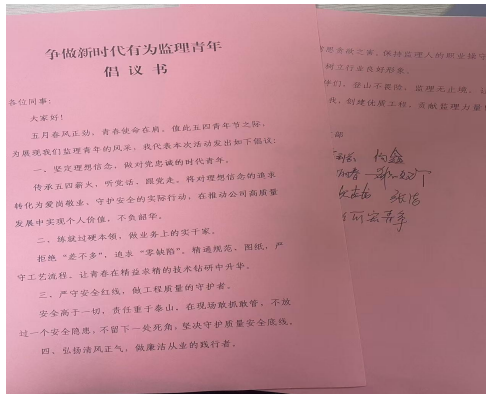 争做新时代有为监理青年
倡议书
各位同事：
大家好！
五月春风正劲，青春使命在肩。值此五四青年节之际，
为展现我们监理青年的风采，我代表本次活动发出如下倡议：
一、坚定理想信念，做对党忠诚的时代青年。
传承五四薪火，听党话、跟党走。将对理想信念的追求
转化为爱岗敬业、守护安全的实际行动，在推动公司高质量
发展中实现个人价值，不负韶华。
二、练就过硬本领，做业务上的实干家。
拒绝“差不多”，追求“零缺陷”。精通规范、图纸，严
守工艺流程，让青春在精益求精的技术钻研中升华。
三、严守安全红线，做工程质量的守护者。
安全高于一切，责任重于泰山。在现场敢抓敢管，不放
过一个安全隐患，不留下一处死角，坚决守护质量安全底线。
四、弘扬清风正气，做廉洁从业的践行者。
保持监理人的职业操守
树立行业良好形象。
登山不畏险，监理无止境。让
我，创建优质工程，贡献监理力量
部